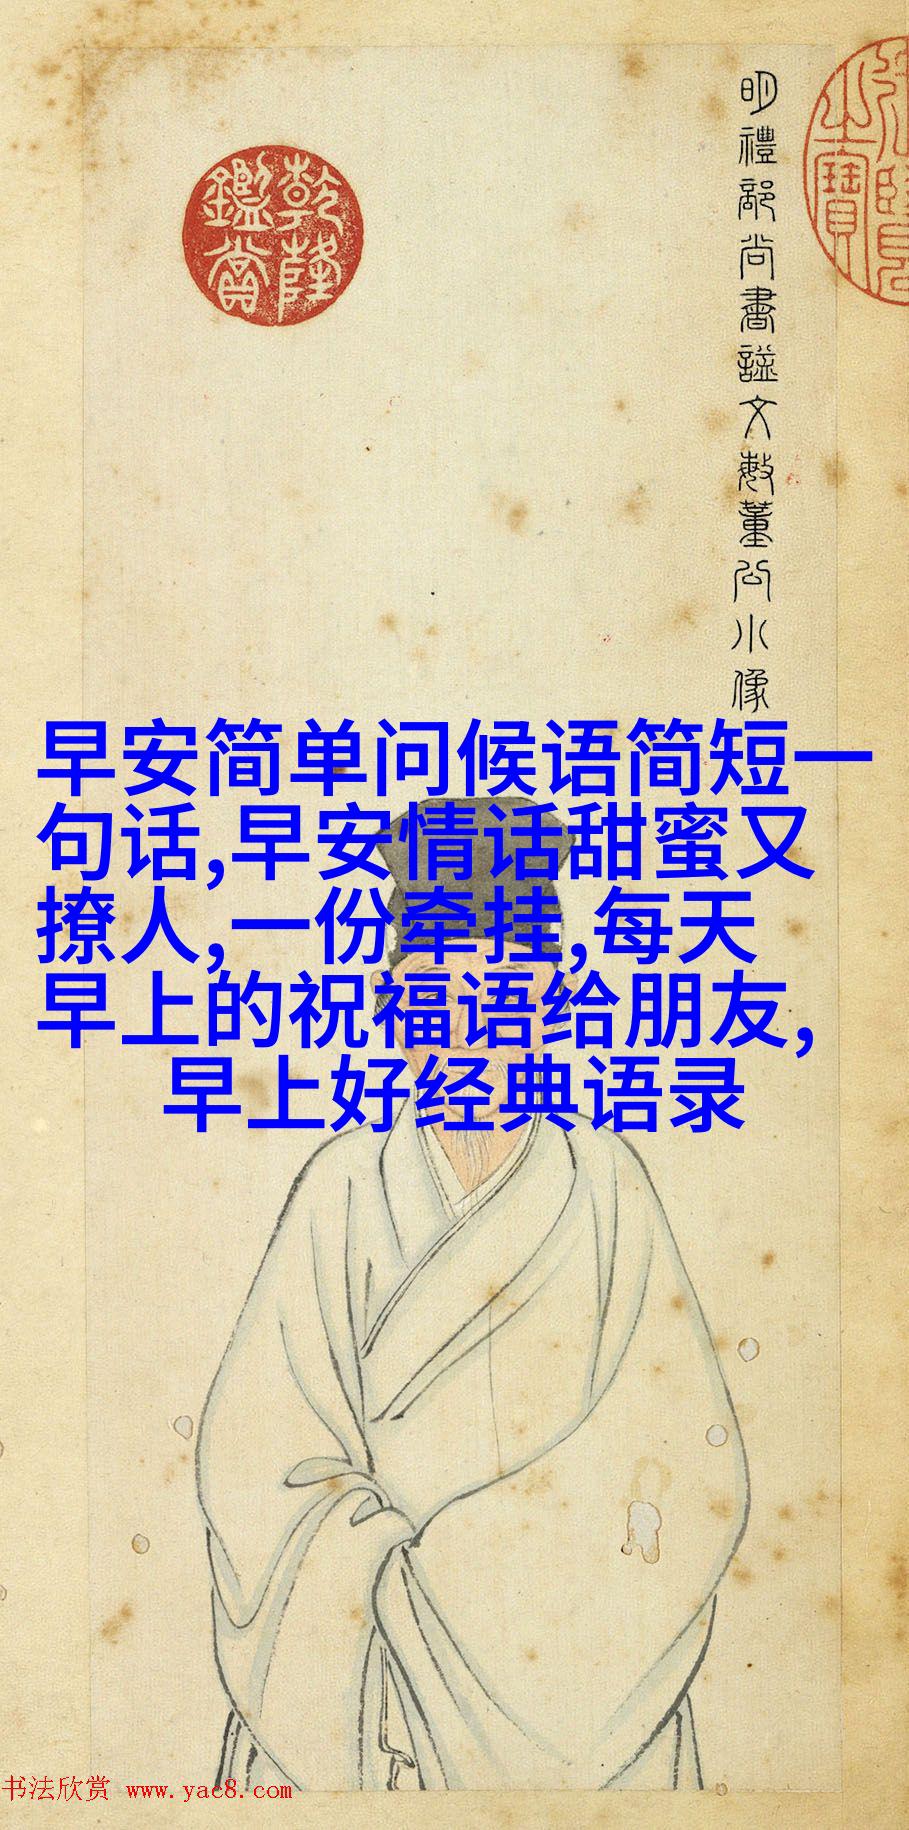 明禮部尚書謚文敏董公小像
乾隆
鑑賞
早安简单问候语简短一
句话,早安情话甜蜜又
撩人,一份牵挂,每天
早上的祝福语给朋友,
早上好经典语录
书法欣赏 www.yac8.com